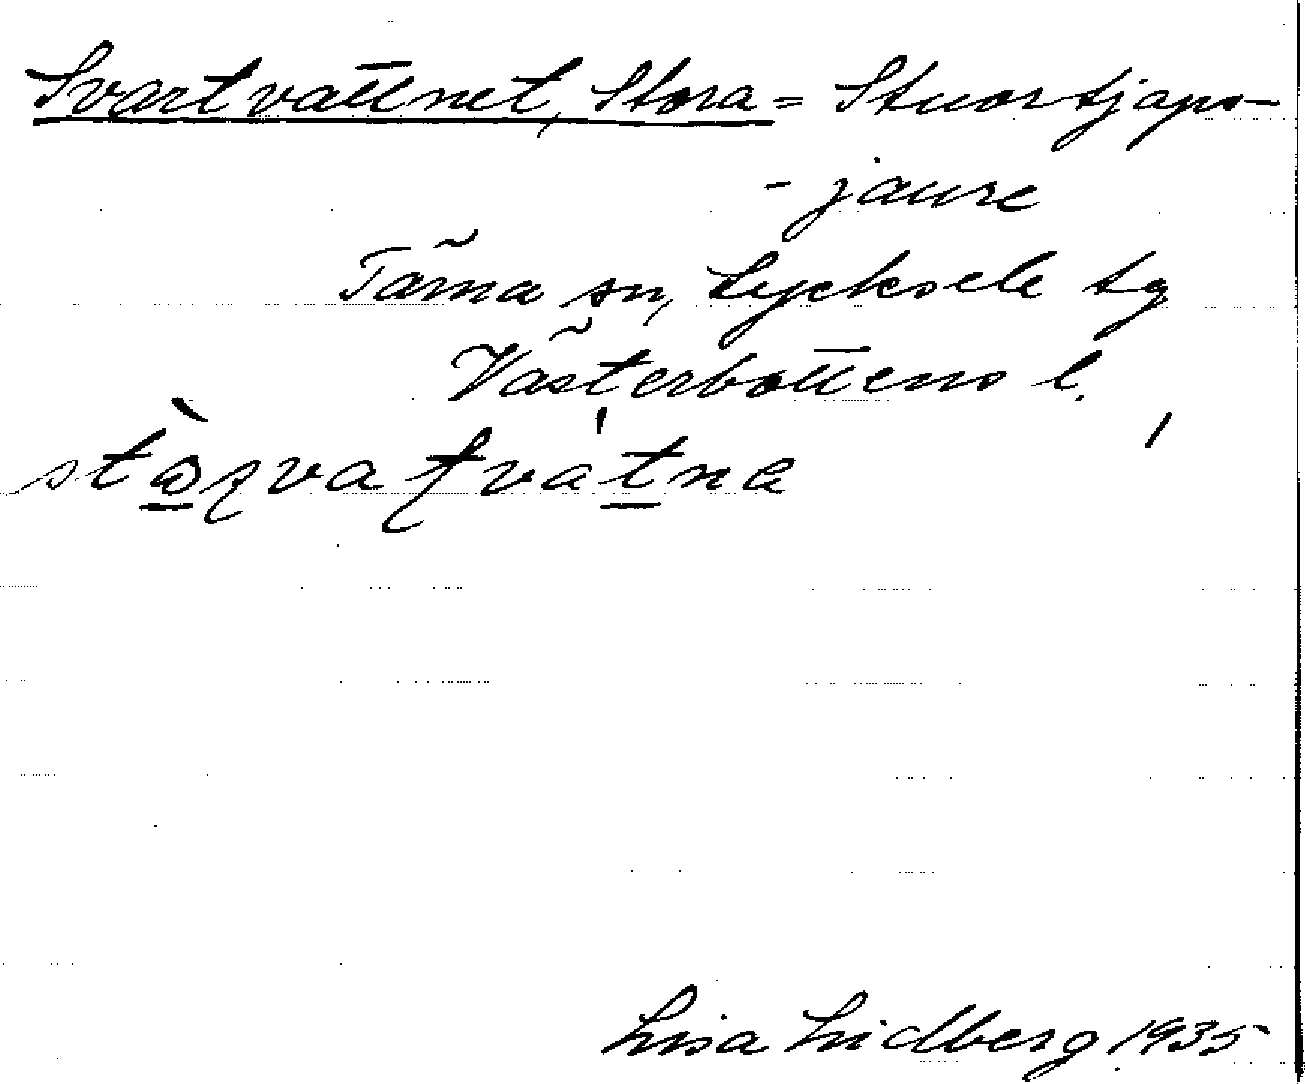 Svartvattnet, Stora = Stuortjaps-
- jaure
Tärna sn, Lycksele tg
Västerbottens l.
Lisa Lidberg 1935